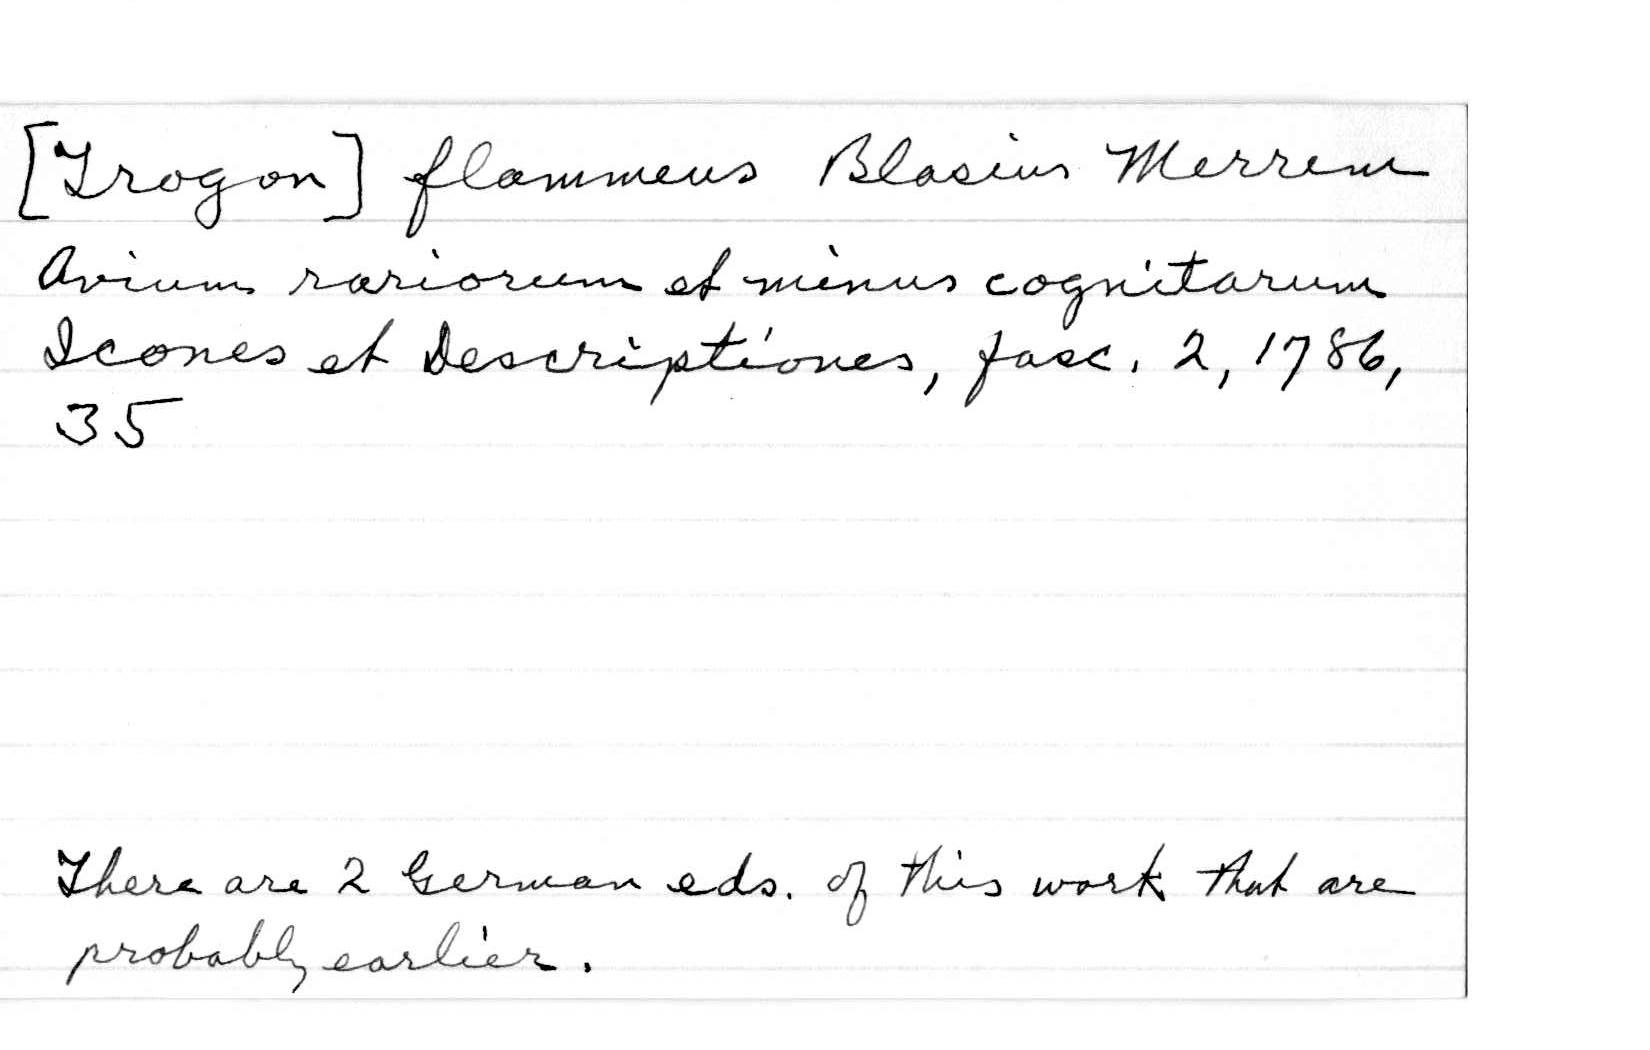 [Trogon] flammeus Blasius Merrem
Avium rariorum et minus cognitarum
Icones et Descriptiones, fasc. 2, 1786,
35
There are 2 German eds. of this work that are
probably earlier.